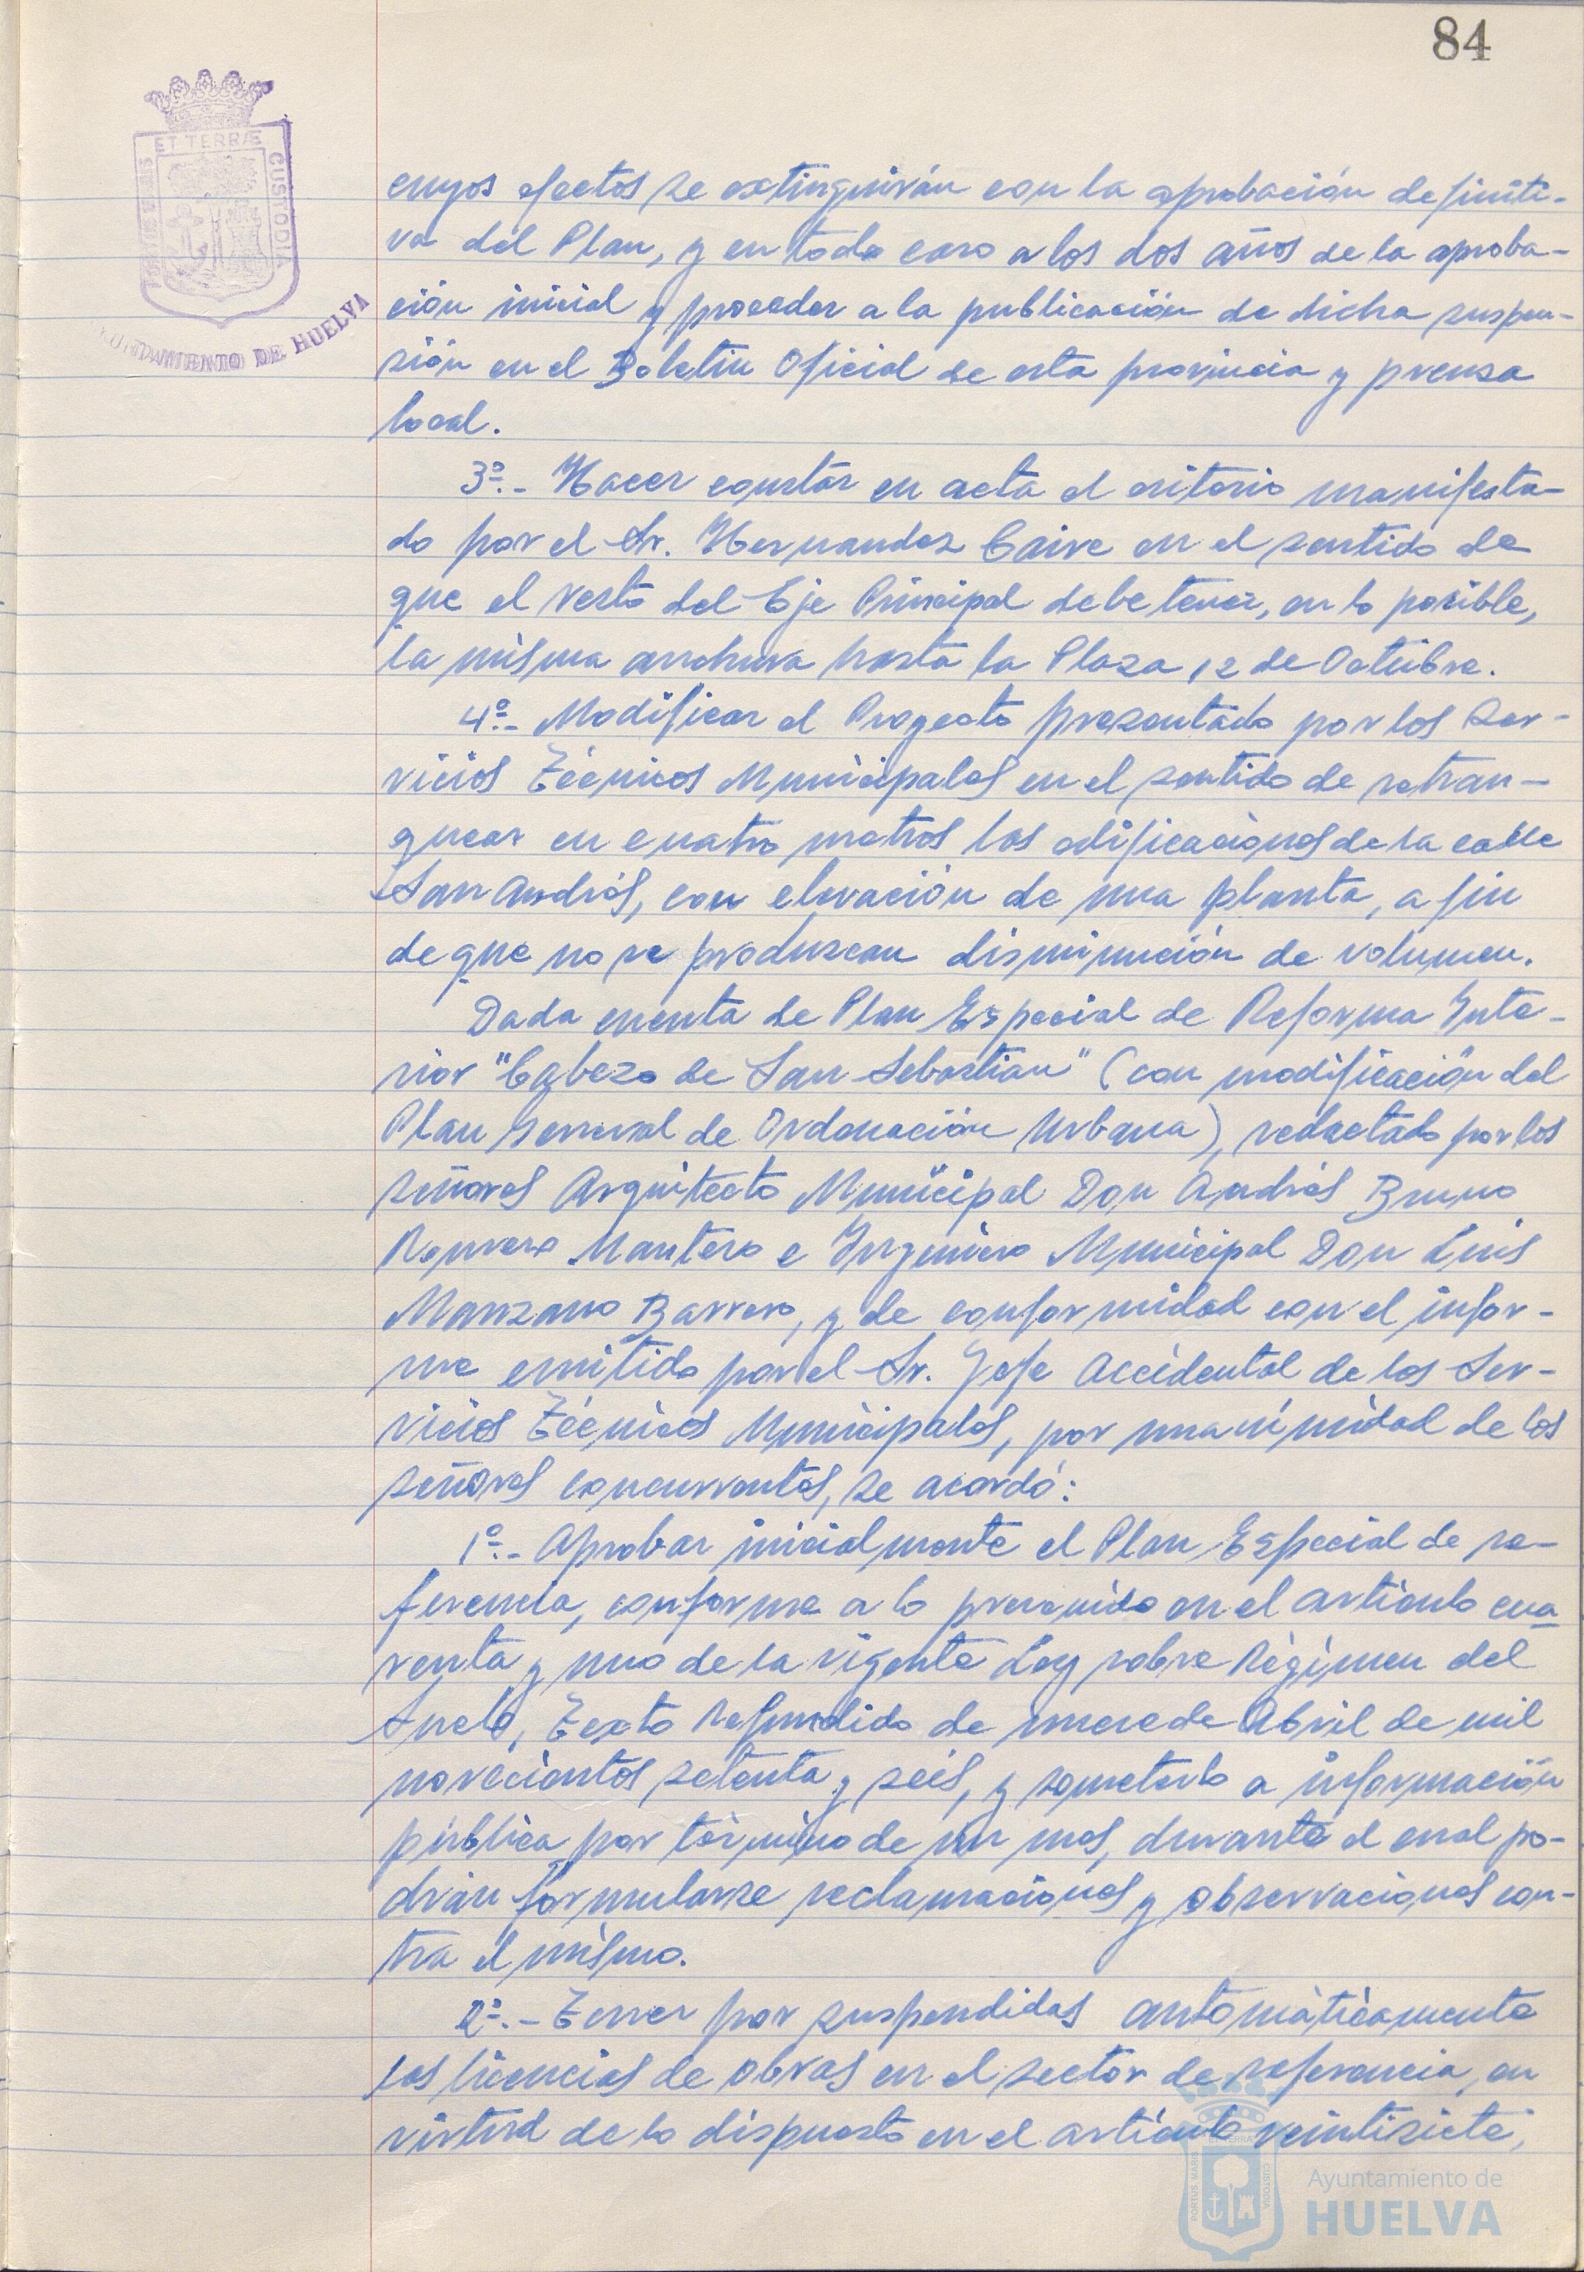 84
ET TERRÆ
CUSTODIA
AYUNTAMIENTO DE HUELVA
cuyos efectos se extinguirán con la aprobación definiti-
va del Plan, y en todo caso a los dos años de la aproba-
ción inicial y proceder a la publicación de dicha suspen-
sión en el Boletin Oficial de esta provincia y prensa
local.
3º.- Hacer constar en acta el criterio manifesta-
do por el Sr. Hernandez Caire en el sentido de
que el resto del Eje Principal debe tener, en lo posible,
la misma anchura hasta la Plaza 12 de Octubre.
4º.- Modificar el Proyecto presentado por los Ser-
vicios Técnicos Municipales en el sentido de retran-
quear en cuatro metros las edificaciones de la calle
San Andrés, con elevación de una planta, a fin
de que no se produzcan disminución de volumen.
Dada cuenta de Plan Especial de Reforma Inte-
rior "Cabezo de San Sebastian" (con modificación del
Plan General de Ordenación Urbana), redactado por los
señores Arquitecto Municipal Don Andrés Bruno
Romero Mantero e Ingeniero Municipal Don Luis
Manzano Barrero, y de conformidad con el infor-
me emitido por el Sr. Jefe Accidental de los Ser-
vicios Técnicos Municipales, por unanimidad de los
señores concurrentes, se acordó:
1º.- Aprobar inicialmente el Plan Especial de re-
ferencia, conforme a lo prevenido en el artículo cua
renta y uno de la vigente Ley sobre Régimen del
Suelo, Texto Refundido de nueve de Abril de mil
novecientos setenta y seis, y someterlo a información
pública por término de un mes, durante el cual po-
drán formularse reclamaciones y observaciones con-
tra el mismo.
2º.- Tener por suspendidas automáticamente
las licencias de obras en el sector de referencia, en
virtud de lo dispuesto en el artículo veintisiete,
PORTUS MARIS
ET TERRÆ
CUSTODIA
Ayuntamiento de
HUELVA